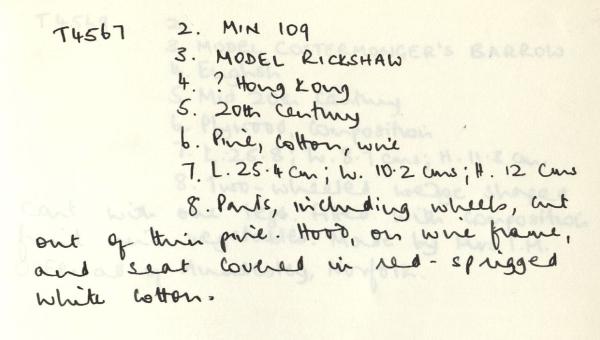 T4567 2. MIN 109
3. MODEL RICKSHAW
4. ? Hong Kong
5. 20th Century
6. Pine, Cotton, wire
7. L. 25.4 cm; W. 10.2 cms; H. 12 cms
8. Parts, including wheels, cut
out of thin pine. Hood, on wire frame,
and seat covered in red-sprigged
white cotton.